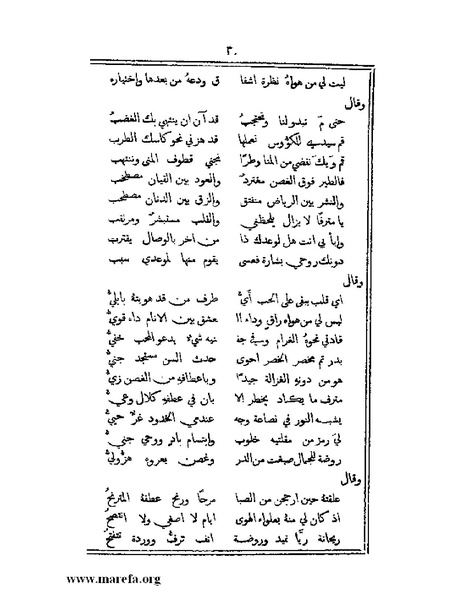 ٣٠
ليت لي من هواه نظرة اشفا ق ودعهُ من بعدها واختياره
وقال
حتى مَ تبدو لنا وتحتجبُ قد آن ان ينتهي بك الغضبُ
قم سيديه للكؤوس نصلها قد هزني نحو كاسك الطرب
قم وبك نقضي من المنا وطرًا نجني قطوف المنى وننتهب
فالطير فوق الغصن مغتردٌ والعود بين القيان مصطخب
والنشر بين الرياض منفتق والزق بين الدنان مصطحب
يا مترفًا لا يزال يلحظني والقلب مستبشرٌ ومرتقب
وابأ بي انت هل لوعدك ذا من آخر بالوصال يقترب
دونك روحي بشارة فعسى يقوم منها لموعدي سبب
وقال
اي قلب يبقى على الحب أيُّ طرف من قد هويتهُ بابليُّ
ليس لي من هواه راقٍ وداء ا عشق بين الانام داء قويُّ
قادني نحوهُ الغرام وسيفُ جفـ نيه شيء يدعو المحب خفيُّ
بدر تم مخصر الخصر احوى حدث السن مستجد جنيُّ
هو من دونه الغزالة جيدًا وباعطافه من الغصن زيُّ
مترف ما يكاد يخطر الا بان في عطفه كلال وعيُّ
يشبه النور في نصاعة وجه عندمي الخدود غرٌّ حييُّ
لي رمز من مقلتيه خلوب وابتسام بادٍ ووحي جنيُّ
روضة للجمال صيغت من الدر وغصن يعروه هزوليُّ
وقال
علقتهُ حين ارجحن من الصبا مرحًا ورنح عطفهُ المترنحُ
اذ كان لي منهُ بعلواء الهوى ايام لا اصغي ولا اتنصحُ
ريحانة ريّا تميد وروضة انف ترفُّ ووردة تتفتحُ
www.marefa.org